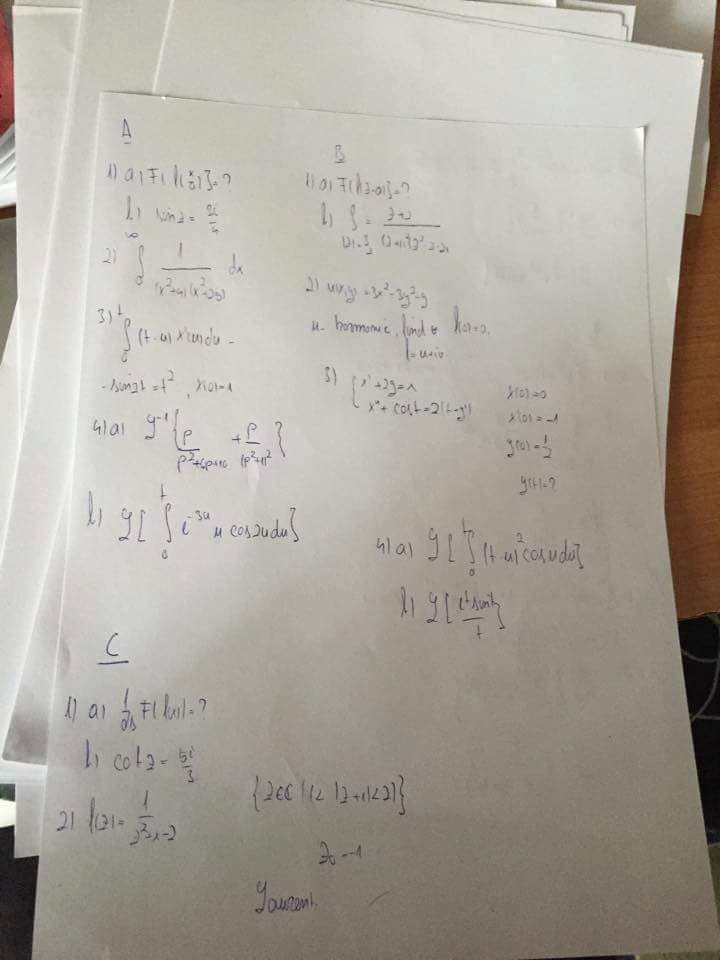 A
1) a) F{f(x/a)}=?
b) sin z = 2i/4
2) ∫₀^∞ 1/((x²+4)(x²+25)) dx
3) ∫₀^t (t-u) x'(u) du -
- sin2t = t², x(0)=1
4) a) y⁻¹ { p/(p²+4p+10) + p/(p²+1)² }
b) y[ ∫₀^t e^(-3u) u cos2u du }
B
1) a) F{f(z-a)}=?
b) ∫ = (z+2)/
2) u(x,y) = 3x²-3y²-y
u- harmonic, find v f(0)=0,
f=u+iv.
3) { x'+2y=1
x"+cost=2(t-y')
x(0)=0
x'(0)=-1
y(0)=1/2
y(t)=?
4) a) y[ ∫₀^t (t-u)² cosu du }
b) y[ e^t sint/t }
C
1) a) 1/ds F{f(x)}=?
b) cot z = 5i/3
2) f(z) = 1/
{z∈C | 1<|z+1|<2|}
z₀ -1
Laurent.